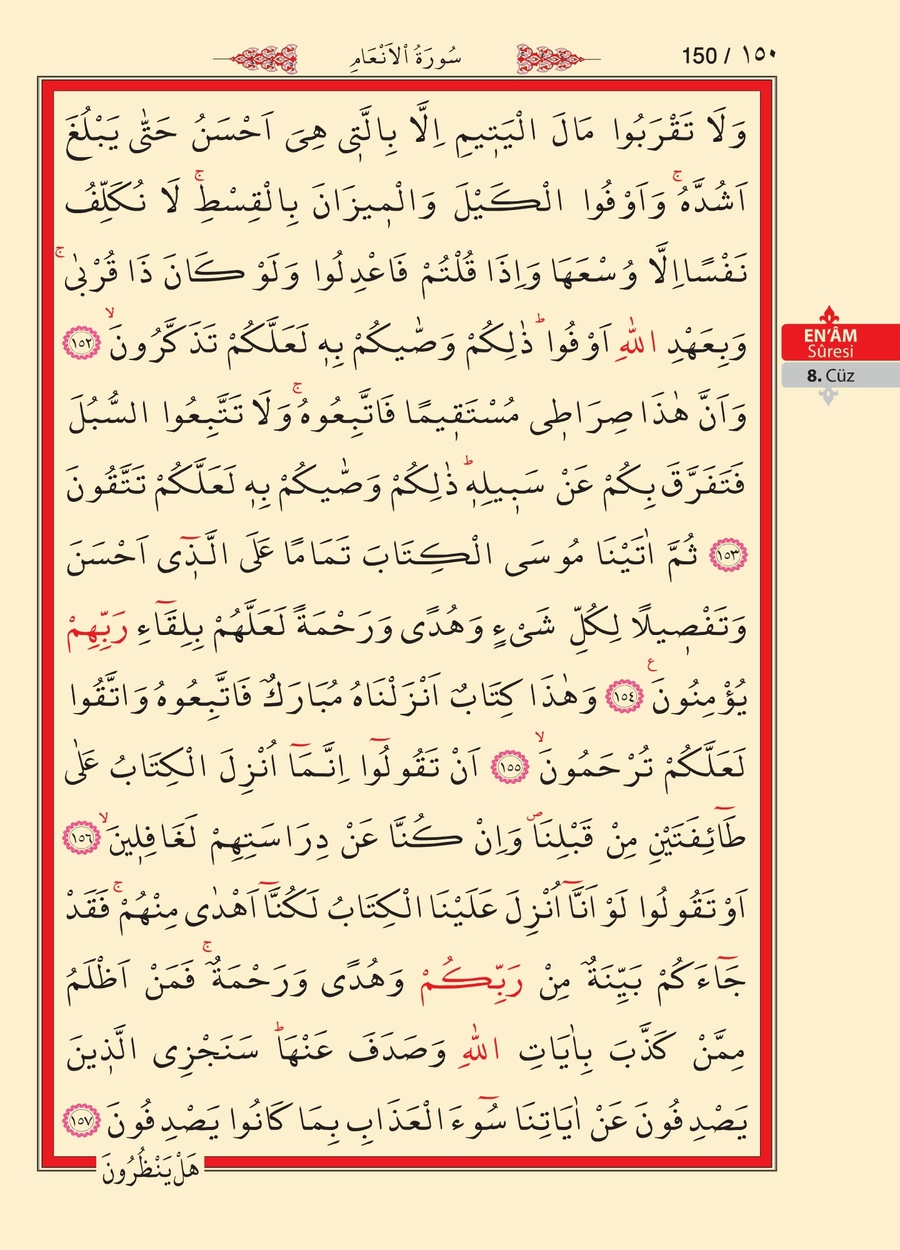 سُورَةُ الْاَنْعَامِ
150 / ١٥٠
وَلَا تَقْرَبُوا مَالَ الْيَت۪يمِ اِلَّا بِالَّت۪ي هِيَ اَحْسَنُ حَتّٰى يَبْلُغَ
اَشُدَّهُۚ وَاَوْفُوا الْكَيْلَ وَالْم۪يزَانَ بِالْقِسْطِۚ لَا نُكَلِّفُ
نَفْسًا اِلَّا وُسْعَهَا وَاِذَا قُلْتُمْ فَاعْدِلُوا وَلَوْ كَانَ ذَا قُرْبٰىۚ
وَبِعَهْدِ اللّٰهِ اَوْفُواۜ ذٰلِكُمْ وَصّٰيكُمْ بِه۪ لَعَلَّكُمْ تَذَكَّرُونَۙ ﴿١٥٢﴾
وَاَنَّ هٰذَا صِرَاط۪ي مُسْتَق۪يمًا فَاتَّبِعُوهُۚ وَلَا تَتَّبِعُوا السُّبُلَ
فَتَفَرَّقَ بِكُمْ عَنْ سَب۪يلِه۪ۜ ذٰلِكُمْ وَصّٰيكُمْ بِه۪ لَعَلَّكُمْ تَتَّقُونَ
﴿١٥٣﴾ ثُمَّ اٰتَيْنَا مُوسَى الْكِتَابَ تَمَامًا عَلَى الَّذ۪ٓي اَحْسَنَ
وَتَفْص۪يلًا لِكُلِّ شَيْءٍ وَهُدًى وَرَحْمَةً لَعَلَّهُمْ بِلِقَٓاءِ رَبِّهِمْ
يُؤْمِنُونَ۟ ﴿١٥٤﴾ وَهٰذَا كِتَابٌ اَنْزَلْنَاهُ مُبَارَكٌ فَاتَّبِعُوهُ وَاتَّقُوا
لَعَلَّكُمْ تُرْحَمُونَۙ ﴿١٥٥﴾ اَنْ تَقُولُٓوا اِنَّمَٓا اُنْزِلَ الْكِتَابُ عَلٰى
طَٓائِفَتَيْنِ مِنْ قَبْلِنَاۖ وَاِنْ كُنَّا عَنْ دِرَاسَتِهِمْ لَغَافِل۪ينَۙ ﴿١٥٦﴾
اَوْ تَقُولُوا لَوْ اَنَّٓا اُنْزِلَ عَلَيْنَا الْكِتَابُ لَكُنَّٓا اَهْدٰى مِنْهُمْۚ فَقَدْ
جَٓاءَكُمْ بَيِّنَةٌ مِنْ رَبِّكُمْ وَهُدًى وَرَحْمَةٌۚ فَمَنْ اَظْلَمُ
مِمَّنْ كَذَّبَ بِاٰيَاتِ اللّٰهِ وَصَدَفَ عَنْهَاۜ سَنَجْزِي الَّذ۪ينَ
يَصْدِفُونَ عَنْ اٰيَاتِنَا سُٓوءَ الْعَذَابِ بِمَا كَانُوا يَصْدِفُونَ ﴿١٥٧﴾
هَلْ يَنْظُرُونَ
EN'ÂM
Sûresi
8. Cüz